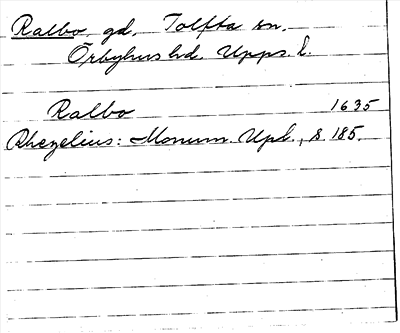 Ralbo, gd, Tolfta sn.
Örbyhus hd. Upps. l.
Ralbo 1635
Rhezelius: Monum. Upl., s. 185.